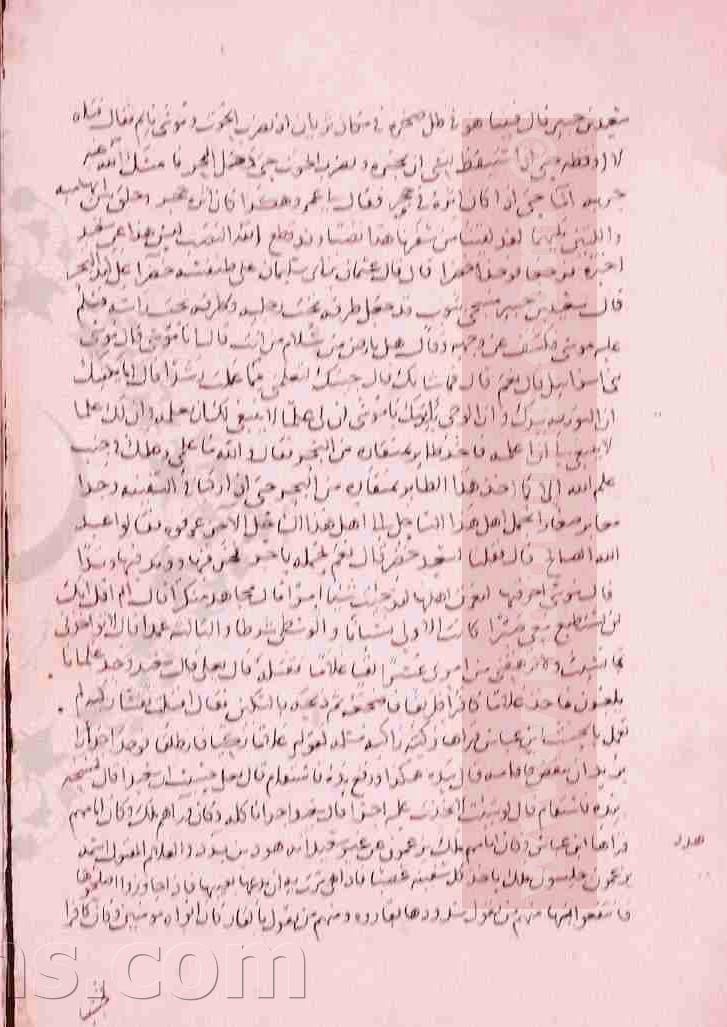 سعيد بن جبير قال فبينما هو في ظل صخرة في مكان ثريان اذ تضرب الحوت وموسى نايم فقال فتاه
لا اوقظه حتى اذا استيقظ نسي ان يخبره وتضرب الحوت حتى دخل البحر فامسك الله عنه
جرية البحر حتى كان اثره في حجر فقال لي عمرو هكذا كان اثره في حجر وحلق بين ابهاميه
واللتين تليهما لقد لقينا من سفرنا هذا نصبا قال قد قطع الله النصب ليس هذا عن سعيد
اخبره فرجعا فوجدا خضرا قال قال عثمان بن ابي سليمان على طنفسة خضرا على كبد البحر
قال سعيد بن جبير مسجى بثوب قد جعل طرفه تحت رجليه وطرفه تحت راسه فسلم
عليه موسى فكشف عن وجهه وقال هل بارض من سلام من انت قال انا موسى قال موسى
بني اسرايل قال نعم قال فما شانك قال جيتك لتعلمني مما علمت رشدا قال اما يكفيك
ان التوربة بيدك وان الوحي ياتيك يا موسى ان لي علما لا ينبغي لك ان تعلمه وان لك علما
لا ينبغي لي ان اعلمه فاخذ طاير بمنقاره من البحر فقال والله ما علمي وعلمك في جنب
علم الله الا كما اخذ هذا الطاير بمنقاره من البحر حتى اذا ركبا في السفينة وجدا
معابر صغارا تحمل اهل هذا الساحل الى اهل هذا الساحل الاخر عرفوه فقالوا عبد
الله الصالح قال فقلنا لسعيد خضر قال نعم لا نحمله باجر فخرقها ووتد فيها وتدا
قال موسى اخرقتها لتغرق اهلها لقد جيت شيئا امرا قال مجاهد منكرا قال الم اقل انك
لن تستطيع معي صبرا كانت الاولى نسيانا والوسطى شرطا والثالثة عمدا قال لا تواخذني
بما نسيت ولا ترهقني من امري عسرا لقيا غلاما فقتله قال يعلى قال سعيد وجد غلمانا
يلعبون فاخذ غلاما كافرا ظريفا فاضجعه ثم ذبحه بالسكين فقال اقتلت نفسا زكية لم
تعمل بالحنث ابن عباس قراها زكية زاكية مسلمة كقولك غلاما زكيا فانطلقا فوجدا جدارا
يريد ان ينقض فاقامه قال بيده هكذا ورفع يده فاستقام قال يعلى حسبت ان سعيدا قال فمسحه
بيده فاستقام قال لو شيت لاتخذت عليه اجرا قال سعيد اجرا ناكله وكان وراهم ملك وكان امامهم
قراها ابن عباس وكان امامهم ملك يزعمون عن غير سعيد انه هدد بن بدد والغلام المقتول اسمه
هدد
يزعمون جيسور ملك ياخذ كل سفينة غصبا فاردت اذا هي مرت به ان يدعها لعيبها فاذا جاوزوا اصلحوها
فانتفعوا بها منهم من يقول سدوها بقارورة ومنهم من يقول بالقار كان ابواه مومنين وكان كافرا
ns.com